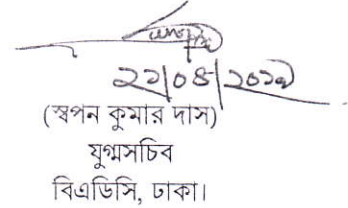 ২২/০৪/২০১৯
(স্বপন কুমার দাস)
যুগ্মসচিব
বিএডিসি, ঢাকা।